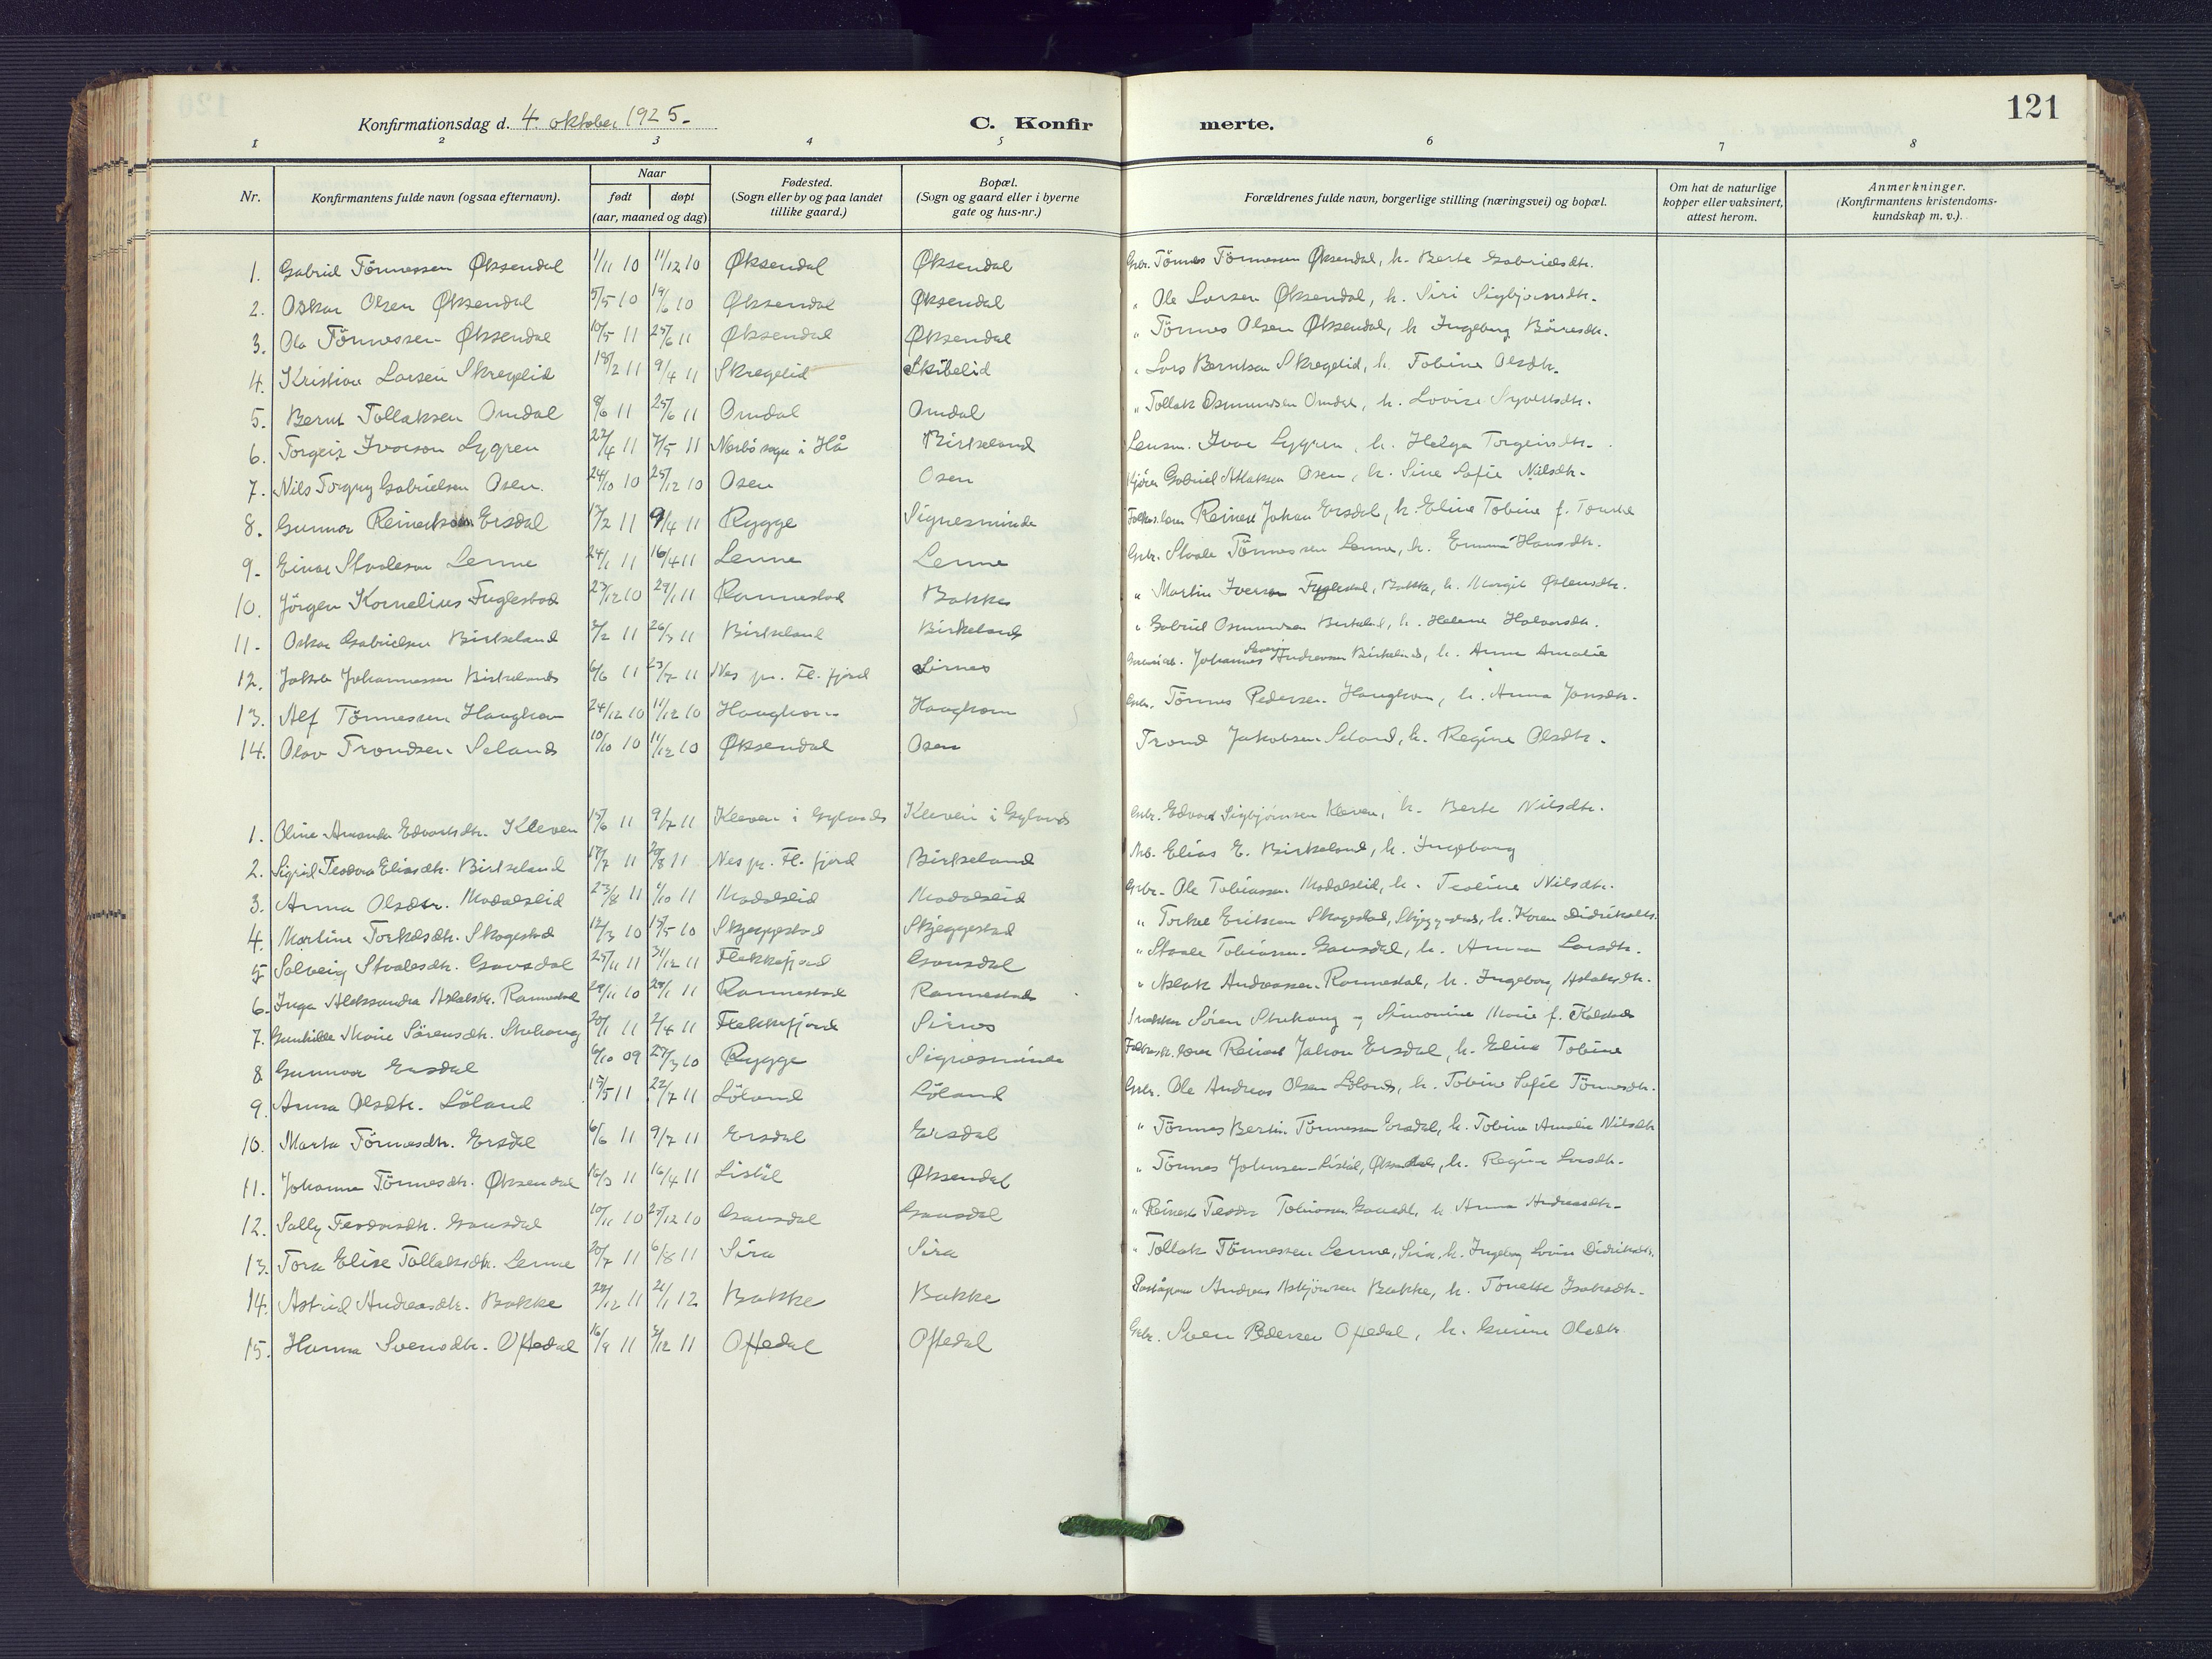 Konfirmationsdag d. 4 oktober 1925.
C. Konfirmerte.
121
1 2 3 4 5 6 7 8
Nr.
Konfirmantens fulde navn (ogsaa efternavn).
Naar
født døpt
(aar, maaned og dag)
Fødested.
(Sogn eller by og paa landet
tillike gaard.)
Bopæl.
(Sogn og gaard eller i byerne
gate og hus-nr.)
Forældrenes fulde navn, borgerlige stilling (næringsvei) og bopæl.
Om hat de naturlige
kopper eller vaksinert,
attest herom.
Anmerkninger.
(Konfirmantens kristendoms-
kundskap m. v.).
1. Gabriel Tönnessen Øksendal 1/11 10 11/12 10 Øksendal Øksendal Gbr. Tönnes Tönnessen Øksendal, h. Berte Gabrielsdtr.
2. Oskar Olsen Øksendal 5/5 10 19/6 10 Øksendal Øksendal " Ole Larsen Øksendal, h. Siri Sigbjörnsdtr.
3. Ole Tönnessen Øksendal 10/5 11 25/6 11 Øksendal Øksendal " Tönnes Olsen Øksendal, h. Ingeborg Börresdtr.
4. Kristian Larsen Skregelid 18/2 11 9/4 11 Skregelid Skibelid " Lars Berntsen Skregelid, h. Tobine Olsdtr.
5. Bernt Tollaksen Omdal 8/6 11 25/6 11 Omdal Omdal " Tollak Osmundsen Omdal, h. Lovise Syvertsdtr.
6. Torgeir Ivarson Lygren 22/4 11 7/5 11 Nærbö sogn i Hå Birkeland Lensm. Ivar Lygren, h. Helga Torgeirsdtr.
7. Nils Torgny Gabrielsen Osen 24/10 10 25/12 10 Osen Osen Gabriel Atlaksen Osen, h. Sine Sofie Nilsdtr.
8. Gunnar Reinertson Ersdal 13/2 11 9/4 11 Rygge Signesminde Reinert Johan Ersdal, h. Eline Tobine f.
9. Einar Staaleson Lenne 24/1 11 16/4 11 Lenne Lenne Gbr. Staale Tönnessen Lenne, h. Emma Hansdtr.
10. Jörgen Kornelius Fuglestad 23/12 10 29/1 11 Rannestad Bakke " Martin Iversen Fuglestad, Bakke, h. Margit Østensdtr.
11. Oskar Gabrielsen Birkeland 3/2 11 26/3 11 Birkeland Birkeland " Gabriel Osmundsen Birkeland, h. Helene Halvorsdtr.
12. Jakob Johannessen Birkeland 6/6 11 23/7 11 Nes pr. Fl. fjord Sirnes Johannes Severin Andreassen Birkeland, h. Anna Amalie
13. Alf Tönnessen Haughom 24/12 10 11/12 10 Haughom Haughom Gbr. Tönnes Pedersen Haughom, h. Anna Jonsdtr.
14. Olav Trondsen Seland 10/10 10 11/12 10 Øksendal Osen Trond Jakobsen Seland, h. Regine Olsdtr.
1. Oline Amanda Edvartsdtr. Kleven 15/6 11 9/7 11 Kleven i Gyland Kleven i Gyland Gbr. Edvard Sigbjörnsen Kleven, h. Berte Nilsdtr.
2. Sigrid Teodora Eliasdtr. Birkeland 17/7 11 20/8 11 Nes pr. Fl. fjord Birkeland Elias E. Birkeland, h. Ingeborg
3. Anna Olsdtr. Modalslid 23/8 11 1/10 11 Modalslid Modalslid Gbr. Ole Tobiassen Modalslid, h. Teoline Nilsdtr.
4. Martine Torkelsdtr. Skogestad 12/3 10 15/5 10 Skjeggestad Skjeggestad " Torkel Eriksen Skogestad, Skjeggestad, h. Karen Didriksdtr.
5. Solveig Staalesdtr. Gausdal 25/11 11 31/12 11 Flekkefjord Gausdal " Staale Tobiassen Gausdal, h. Anna Larsdtr.
6. Inga Aleksandra Aslaksdtr. Rannestad 29/11 10 29/1 11 Rannestad Rannestad " Aslak Andreassen Rannestad, h. Ingeborg Aslaksdtr.
7. Gunhilde Marie Sörensdtr. Stuhaug 20/1 11 2/4 11 Flekkefjord Sirnes Sören Stuhaug og Simonine Marie f.
8 Gunnvor Ersdal 6/10 09 27/3 10 Rygge Signesminde Reinert Johan Ersdal, h. Eline Tobine
9. Anna Olsdtr. Löland 15/5 11 22/7 11 Löland Löland Gbr. Ole Andreas Olsen Löland, h. Tobine Sofie Tönnesdtr.
10. Marta Tönnesdtr. Ersdal 6/6 11 9/7 11 Ersdal Ersdal " Tönnes Bertin Tönnessen Ersdal, h. Tobine Amalie Nilsdtr
11. Johanna Tönnesdtr. Øksendal 16/3 11 16/4 11 Listöl Øksendal " Tönnes Johnsen Listöl, Øksendal, h. Regine Larsdtr.
12. Sally Teodorsdtr. Gausdal 10/11 10 25/12 10 Gausdal Gausdal " Reinert Teodor Tobiassen Gausdal, h. Anna Andreasdtr.
13. Tora Elise Tollaksdtr. Lenne 20/7 11 6/8 11 Sira Sira " Tollak Tönnessen Lenne, Sira, h. Ingeborg Lovise Didriksdtr.
14. Astrid Andreasdtr. Bakke 28/12 11 21/1 12 Bakke Bakke Andreas Asbjörnsen Bakke, h. Tonette Isaksdtr.
15. Hanna Svensdtr. Oftedal 16/9 11 3/12 11 Oftedal Oftedal Gbr. Sven Pedersen Oftedal, h. Gurine Olsdtr.